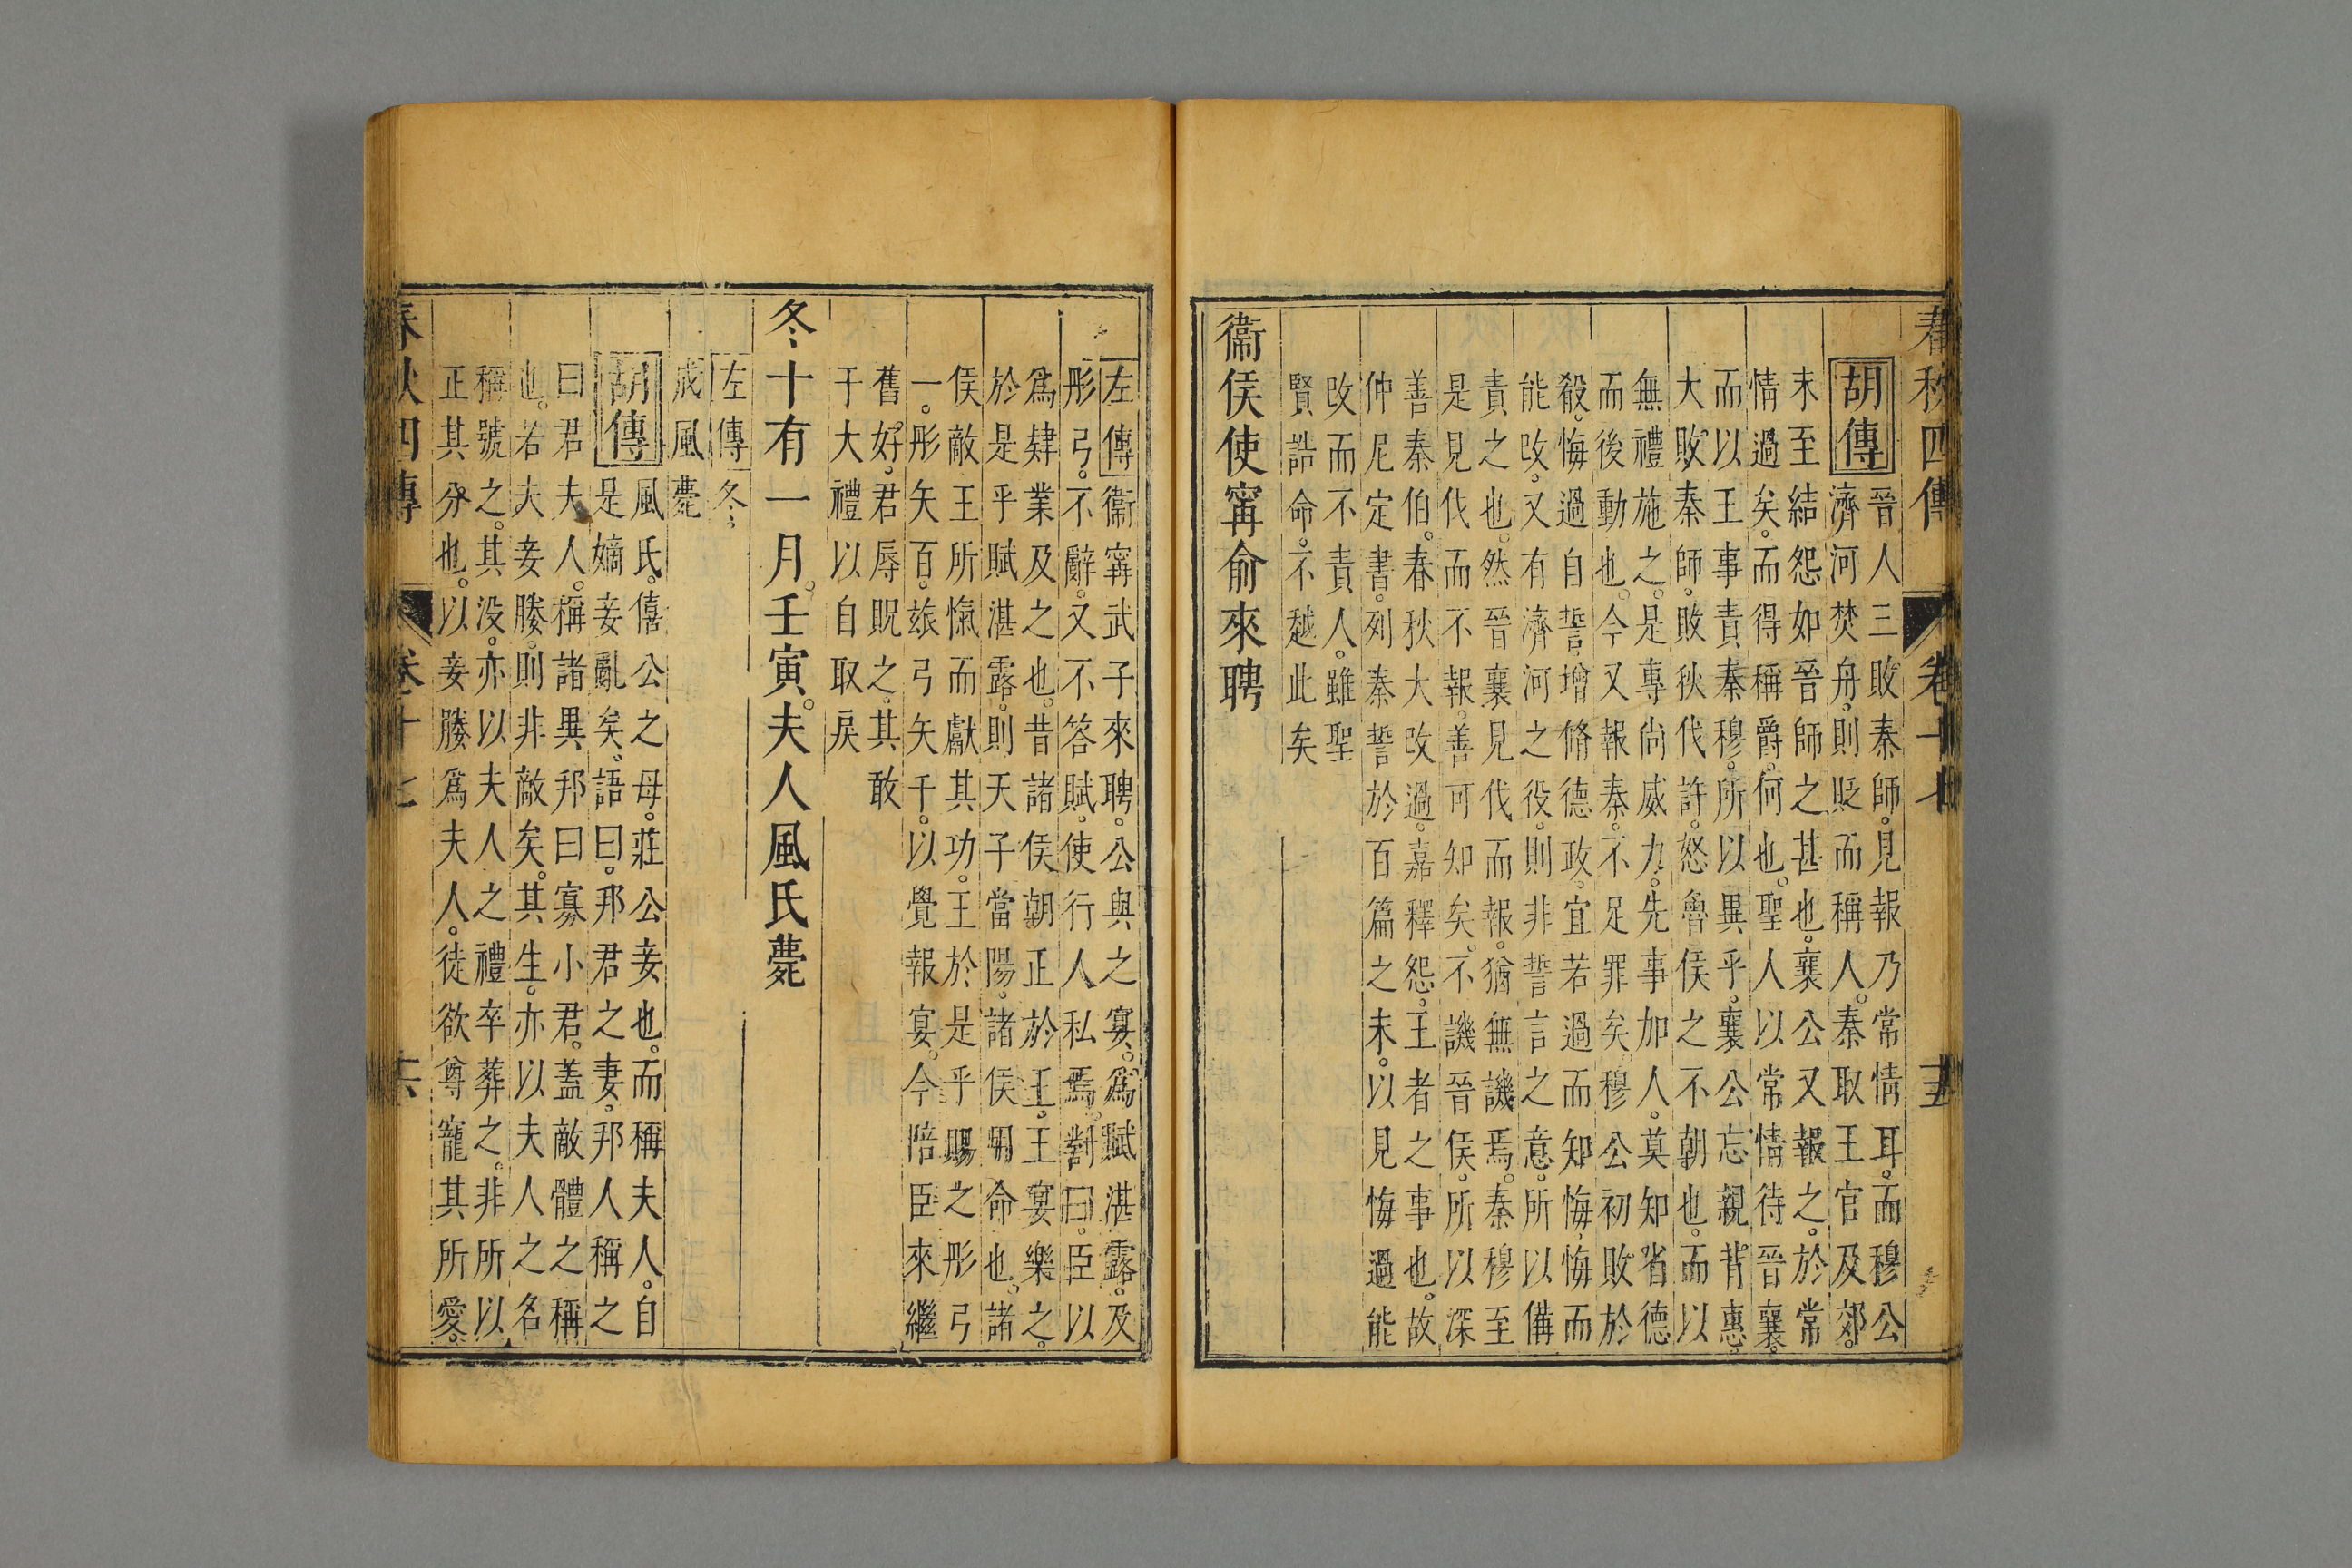 春秋四傳 卷十七 十五
胡傳 晉人三敗秦師。見報乃常情耳。而穆公
濟河焚舟。則貶而稱人。秦取王官及郊。
未至結怨如晉師之甚也。襄公又報之。於常
情過矣。而得稱爵。何也。聖人以常情待晉襄。
而以王事責秦穆。所以異乎。襄公忘親背惠。
大敗秦師。敗狄伐許。怒魯侯之不朝也。而以
無禮施之。是專尚威力。先事加人。莫知省德
而後動也。今又報秦。不足罪矣。穆公初敗於
殽。悔過自誓。增脩德政。宜若過而知悔。悔而
能改。又有濟河之役。則非誓言之意。所以備
責之也。然晉襄見伐而報。猶無譏焉。秦穆至
是見伐而不報。善可知矣。不譏晉侯。所以深
善秦伯。春秋大改過。嘉釋怨。王者之事也。故
仲尼定書。列秦誓於百篇之末。以見悔過能
改而不責人。雖聖
賢誥命。不越此矣
衞侯使甯俞來聘
左傳 衞甯武子來聘。公與之宴。爲賦湛露。及
彤弓。不辭。又不答賦。使行人私焉。對曰。臣以
爲肄業及之也。昔諸侯朝正於王。王宴樂之。
於是乎賦湛露。則天子當陽。諸侯用命也。諸
侯敵王所愾而獻其功。王於是乎賜之彤弓
一。彤矢百。玈弓矢千。以覺報宴。今陪臣來繼
舊好。君辱貺之。其敢
干大禮以自取戾
冬、十有一月。壬寅。夫人風氏薨
左傳 冬、
成風薨
胡傳 風氏。僖公之母。莊公妾也。而稱夫人。自
是嫡妾亂矣。語曰。邦君之妻。邦人稱之
曰君夫人。稱諸異邦曰寡小君。蓋敵體之稱
也。若夫妾媵。則非敵矣。其生。亦以夫人之名
稱號之。其没。亦以夫人之禮卒葬之。非所以
正其分也。以妾媵爲夫人。徒欲尊寵其所愛。
春秋四傳 卷十七 十六